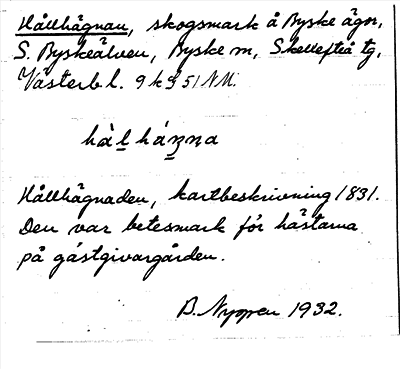 Hållhägnan, skogsmark å Byske ägor,
S. Byskeälven, Byske sn, Skellefteå tg,
Västerb. l. 9 k S 51 NM.
Hållhägnaden, kartbeskrivning 1831.
Den var betesmark för hästarna
på gästgivargården.
B. Nyppen 1932.